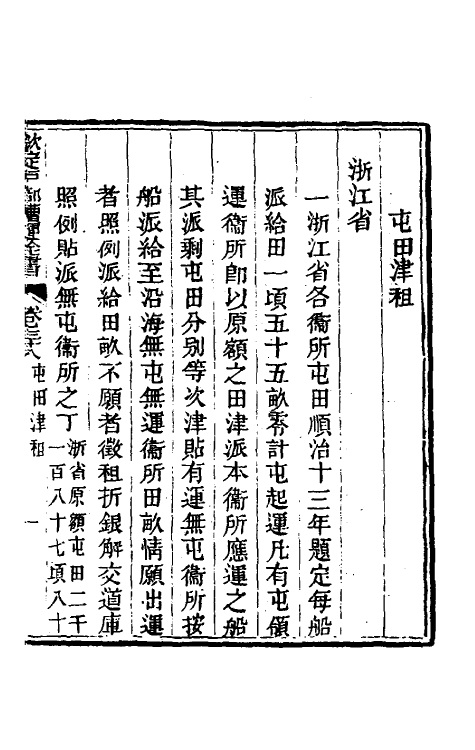 屯田津租
浙江省
一浙江省各衞所屯田順治十三年題定每船
派給田一頃五十五畝零計屯起運凡有屯領
運衞所卽以原額之田津派本衞所應運之船
其派剩屯田分别等次津貼有運無屯衞所按
船派給至沿海無屯無運衞所田畝情願出運
者照例派給田畝不願者徵租折銀解交道庫
照例貼派無屯衞所之丁浙省原額屯田二千
一百八十七頃八十
欽定戶部漕運全書
卷三十八 屯田津租
一